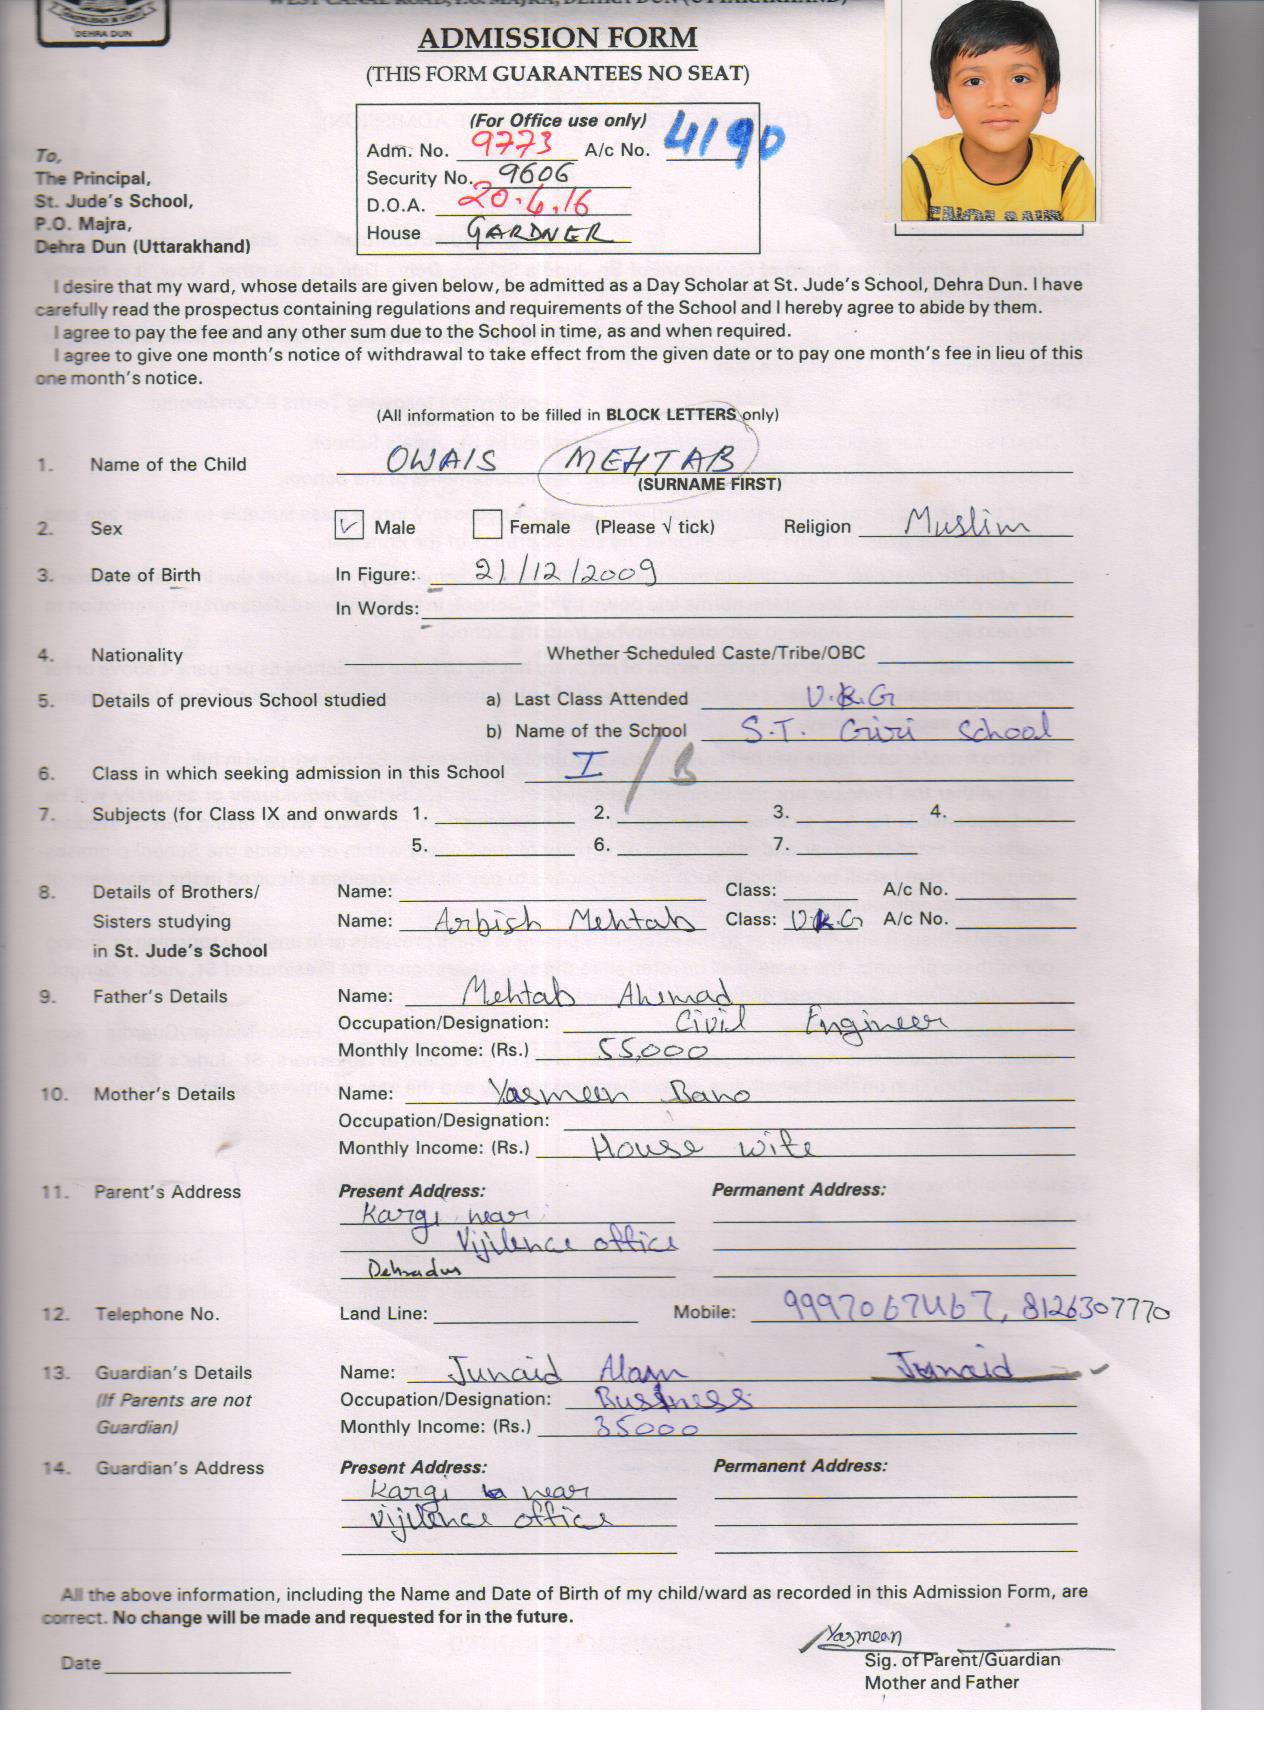 WEST CANAL ROAD, P.O. MAJRA, DEHRA DUN (UTTARAKHAND)
DEHRA DUN
ADMISSION FORM
(THIS FORM GUARANTEES NO SEAT)
(For Office use only)
Adm. No. 9773 A/c No. 4190
Security No. 9606
D.O.A. 20.4.16
House GARDNER
To,
The Principal,
St. Jude's School,
P.O. Majra,
Dehra Dun (Uttarakhand)
I desire that my ward, whose details are given below, be admitted as a Day Scholar at St. Jude's School, Dehra Dun. I have
carefully read the prospectus containing regulations and requirements of the School and I hereby agree to abide by them.
I agree to pay the fee and any other sum due to the School in time, as and when required.
I agree to give one month's notice of withdrawal to take effect from the given date or to pay one month's fee in lieu of this
one month's notice.
(All information to be filled in BLOCK LETTERS only)
1. Name of the Child OWAIS MEHTAB
(SURNAME FIRST)
2. Sex Male Female (Please √ tick) Religion Muslim
3. Date of Birth In Figure: 21/12/2009
In Words:
4. Nationality Whether Scheduled Caste/Tribe/OBC
5. Details of previous School studied a) Last Class Attended U.K.G
b) Name of the School S.T. Giri School
6. Class in which seeking admission in this School I / B
7. Subjects (for Class IX and onwards 1. 2. 3. 4.
5. 6. 7.
8. Details of Brothers/ Name: Class: A/c No.
Sisters studying Name: Arbish Mehtab Class: U.K.G A/c No.
in St. Jude's School
9. Father's Details Name: Mehtab Ahmad
Occupation/Designation: Civil Engineer
Monthly Income: (Rs.) 55,000
10. Mother's Details Name: Yasmeen Bano
Occupation/Designation:
Monthly Income: (Rs.) House wife
11. Parent's Address Present Address: Permanent Address:
Kargi near
Vijilence office
Dehradun
12. Telephone No. Land Line: Mobile: 9997067467, 8126307770
13. Guardian's Details Name: Junaid Alam Junaid
(If Parents are not Occupation/Designation: Bussness
Guardian) Monthly Income: (Rs.) 35000
14. Guardian's Address Present Address: Permanent Address:
Kargi near
Vijilence office
All the above information, including the Name and Date of Birth of my child/ward as recorded in this Admission Form, are
correct. No change will be made and requested for in the future.
Yasmean
Date Sig. of Parent/Guardian
Mother and Father